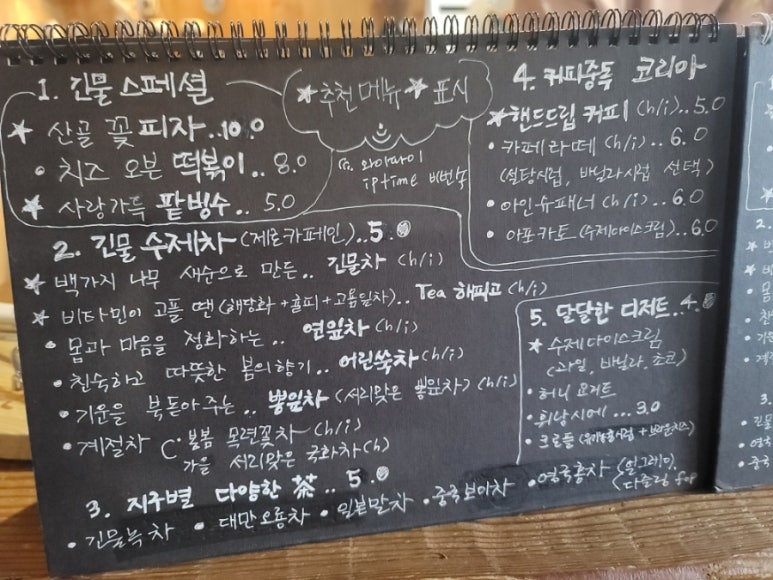 1. 긴물 스페셜
★ 산골 꽃피자..10.0
• 치즈 오븐 떡볶이.. 8.0
★ 사랑가득 팥빙수.. 5.0
★ 추천메뉴 ★ 표시
와이파이
iptime 비번 숙
2. 긴물 수제차 (제로카페인)..5.0
★ 백가지 나무 새순으로 만든.. 긴물차 (h/i)
★ 비타민이 고플 땐 (해당화+귤피+고욤잎차).. Tea 해피고 (h/i)
• 몸과 마음을 정화하는.. 연잎차 (h/i)
• 친숙하고 따뜻한 봄의향기.. 어린쑥차 (h/i)
• 기운을 북돋아주는.. 뽕잎차 (서리맞은 뽕잎차) (h/i)
• 계절차 봄 목련꽃차 (h/i)
가을 서리맞은 국화차 (h)
3. 지구별 다양한 茶.. 5.0
• 긴물녹차 • 대만오룡차 • 일본말차 • 중국보이차 • 영국홍차 (얼그레이,
다즐링
4. 커피중독 코리아
★ 핸드드립 커피 (h/i)..5.0
• 카페라떼 (h/i).. 6.0
(설탕시럽, 바닐라시럽 선택)
• 아인슈패너 (h/i)..6.0
• 아포카토 (수제아이스크림)..6.0
5. 달달한 디저트..4.0
★ 수제아이스크림
(과일, 바닐라, 초코)
• 허니 요거트
• 휘낭시에...3.0
• 크로플